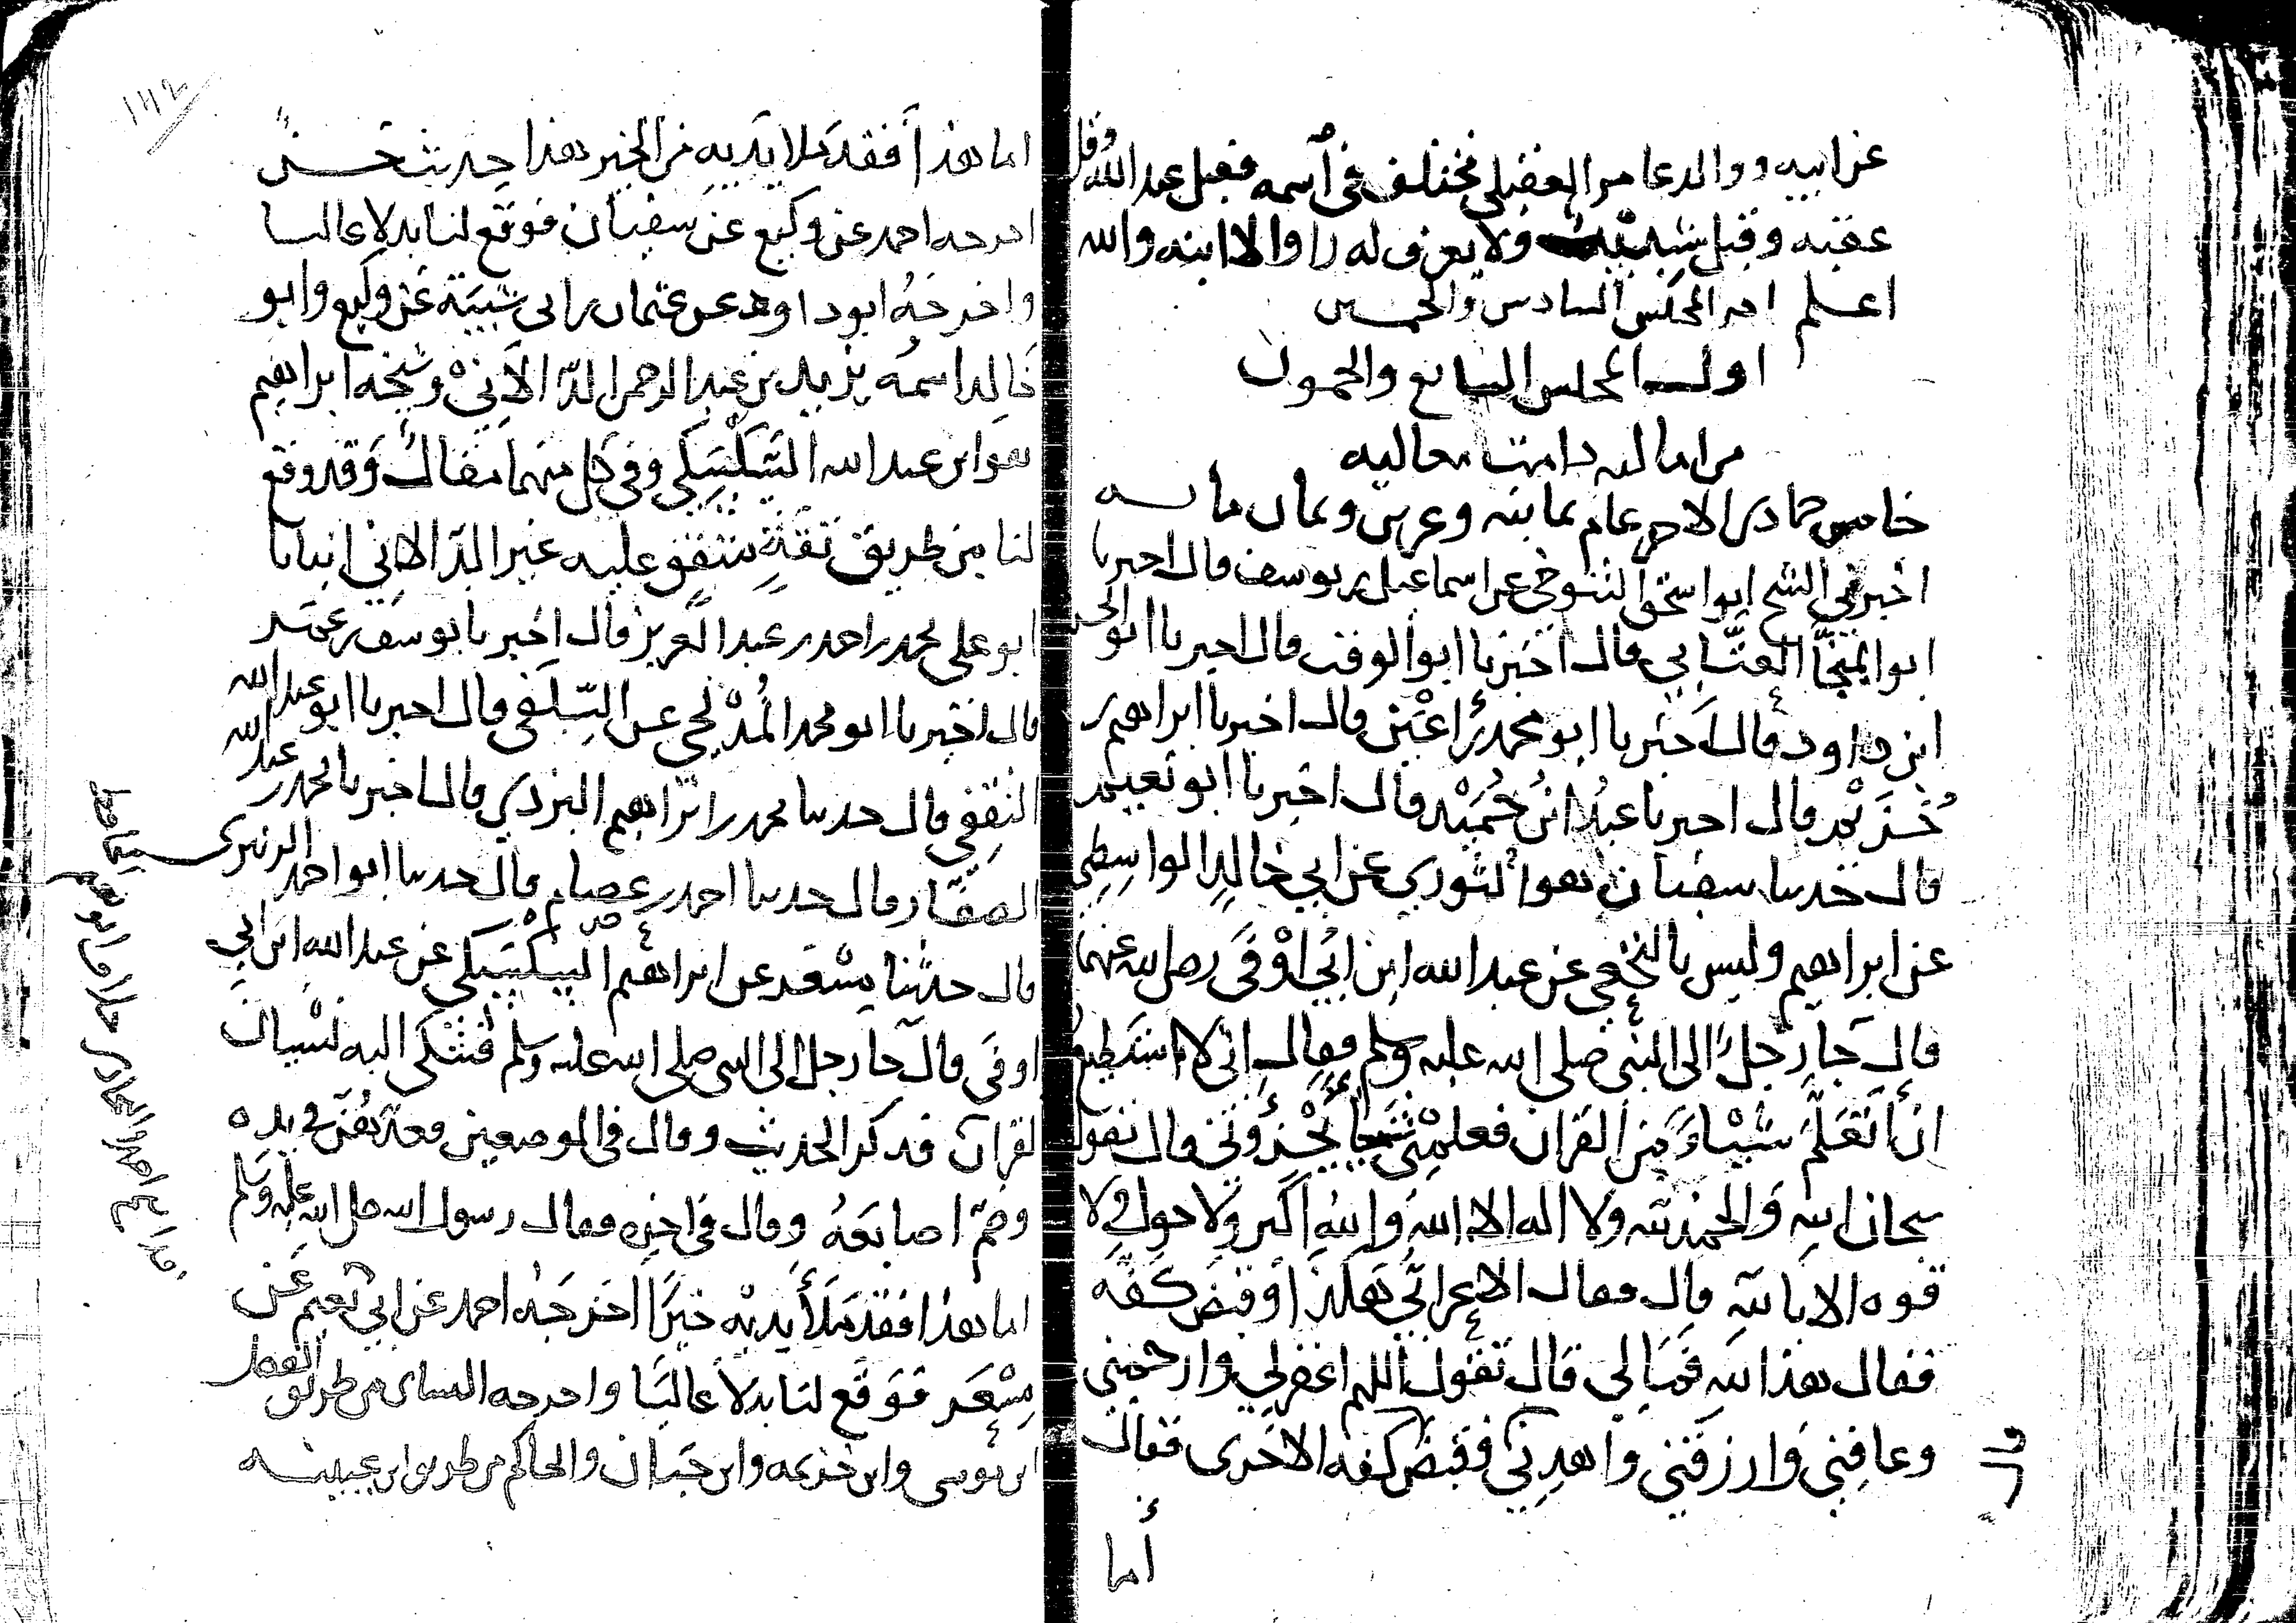 عن ابيه ووالد عامر العقيلي مختلف في اسمه فقيل عبد الله وقيل
عقبة وقيل شبيب ولا يعرف له راو الا ابنه والله
اعلم اخر المجلس السادس والخمسين
اول المجلس السابع والخمسون
من اماليه دامت معاليه
خامس جمادى الاخر عام ثمانية وعشرين وثمان مايه
اخبرني الشيخ ابو اسحق التنوخي عن اسماعيل بن يوسف قال اخبرنا
ابو المنجا العتابي قال اخبرنا ابو الوقت قال اخبرنا ابو الحسن
ابن داود قال اخبرنا ابو محمد بن اعين قال اخبرنا ابراهيم بن
خزيم قال اخبرنا عبد ابن حميد قال اخبرنا ابو نعيم
قال حدثنا سفيان هو الثوري عن ابي خالد الواسطي
عن ابراهيم وليس بالنخعي عن عبد الله ابن ابي اوفى رضي الله عنهما
قال جا رجل الى النبي صلى الله عليه وسلم فقال اني لا استطيع
ان اتعلم شيئا من القران فعلمني شيئا يجزوني قال تقول
سبحان الله والحمد لله ولا اله الا الله والله اكبر ولا حول ولا
قوه الا بالله قال فقال الاعرابي هكذا وقبض كفه
فقال هذا لله فما لي قال تقول اللهم اغفر لي وارحمني
وعافني وارزقني واهدني فقبض كفه الاخرى فقال
قال
أما
١٤٢
اما هذا فقد ملا يديه من الخير هذا حديث حسن
اخرجه احمد عن وكيع عن سفيان فوقع لنا بدلا عاليا
واخرجه ابو داود عن عثمان بن ابي شيبة عن وكيع وابو
خالد اسمه يزيد بن عبد الرحمن الدالاني وشيخه ابراهيم
هو ابن عبد الله السكسكي وفي كل منهما مقال وقد وقع
لنا من طريق ثقة متفق عليه غير الدالاني انبانا
ابو علي محمد بن احمد بن عبد العزيز قال اخبرنا يوسف بن عمر
قال اخبرنا ابو محمد المدلجي عن السلفي قال اخبرنا ابو عبد الله
الثقفي قال حدثنا محمد بن ابراهيم اليزدي قال اخبرنا محمد بن عبد الله
الصفار قال حدثنا احمد بن عصام قال حدثنا ابو احمد الزبيري
قال حدثنا مسعر عن ابراهيم السكسكي عن عبد الله ابن ابي
اوفى قال جا رجل الى النبي صلى الله عليه وسلم فشكى اليه نسيان
القرآن فذكر الحديث وقال في الموضعين فعدهن في يده
وضم اصابعه وقال في اخره فقال رسول الله صلى الله عليه وسلم
اما هذا فقد ملأ يديه خيرا اخرجه احمد عن ابي نعيم عن
مسعر فوقع لنا بدلا عاليا واخرجه النساى من طريق الفضل
ابن موسى وابن خزيمه وابن حبان والحاكم من طريق ابن عيينه